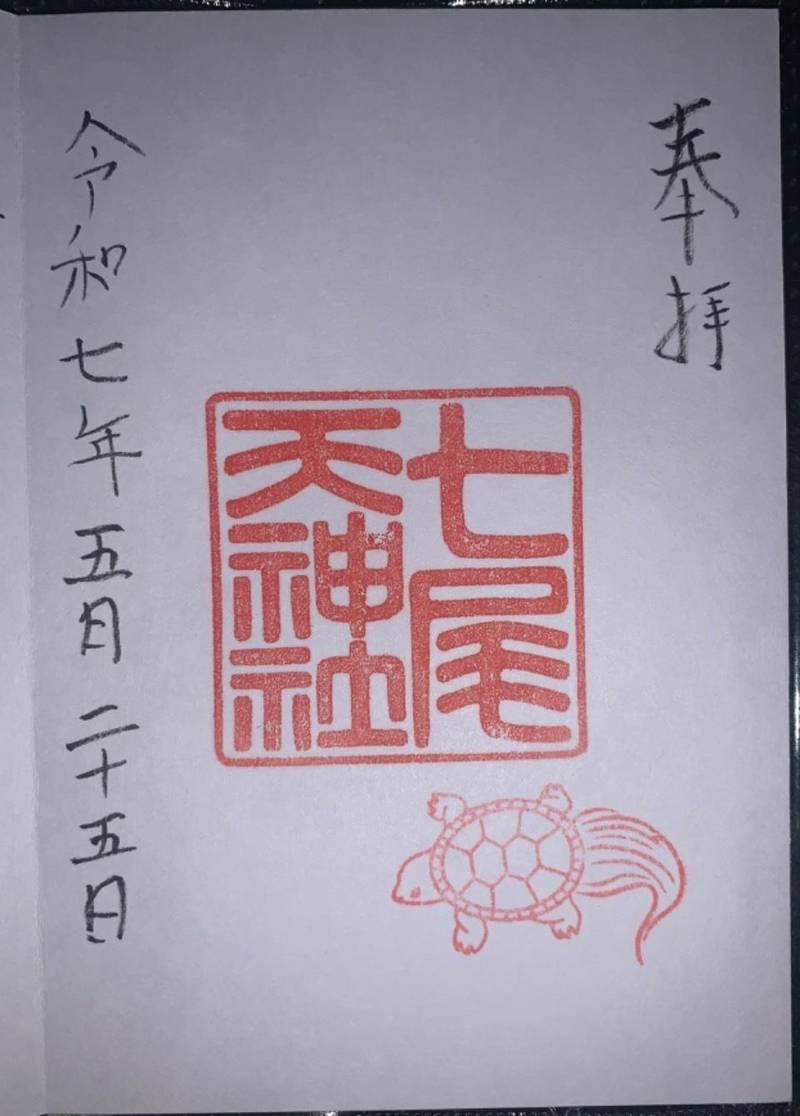 奉拝
七尾
天神社
令和七年五月二十五日